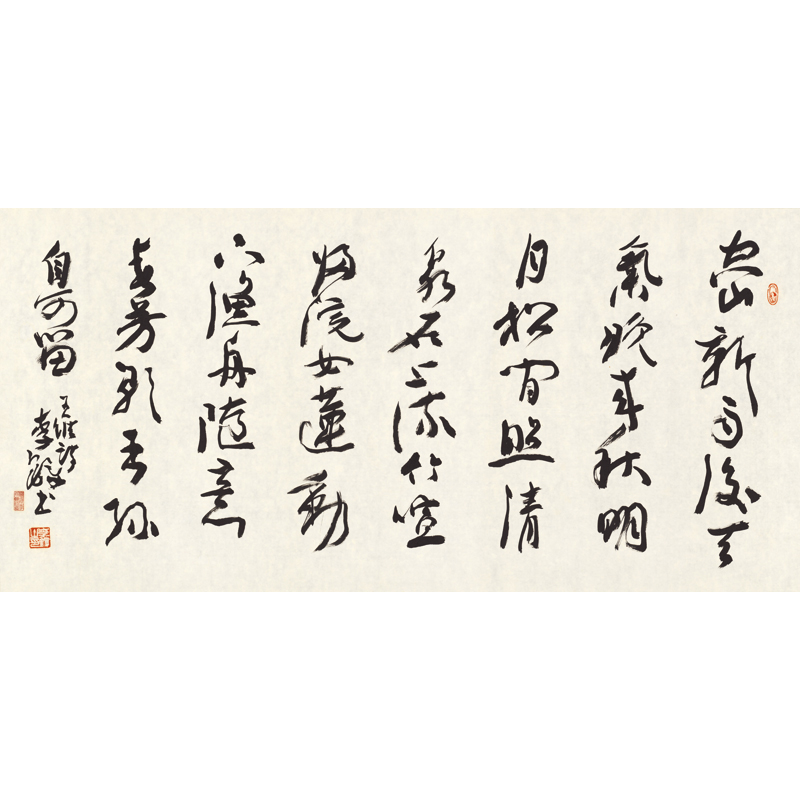 空山新雨後天
氣晚来秋明
月松間照清
泉石上流竹喧
歸浣女蓮動
下漁舟隨意
春芳歇王孫
自可留
王維詩
李书